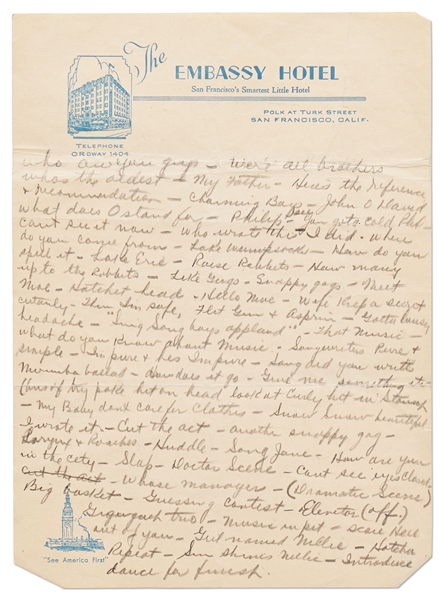 The
EMBASSY HOTEL
San Francisco's Smartest Little Hotel
POLK AT TURK STREET
SAN FRANCISCO, CALIF.
TELEPHONE
ORDWAY 1404
who are you guys – We're all brothers
whos the oldest – My Father – Heres the reference
& recommendation – Charming Boys – John O David
what does O stand for – Philip got a cold
cant see it now – Who wrote this I did. Where
do you come from – Lake – How do you
spell it – Lake Erie – Raise Rabbits – How many
up to the Rabbits – Like Gags – Snappy gags – Meet
Moe – Hatchet head – Hello Moe – Wife Keep a secret
certainly – Then Im safe, Flit Gun & Asprin – Gotta
headache – "Song boys applaud" – That Music –
what do you Know about Music – Songwriters Pure &
simple – Im pure & hes Im pure – Song did you write
ballad – How does it go – Give me something it –
hit on head look at Curley hit in Stomach
– My Baby dont care for Clothes – Snow Snow beautiful
I wrote it – Cut the act – another snappy gag –
& Roaches – Huddle – Song Jane – How are you
in the city – Slap – Doctor Scene – Cant see eyes closed –
cut the act – Whose manager – (Dramatic Scene)
Big Basket – Guessing Contest – Elevator (off.)
two – Music in pit – scare Hell
out of you – Girl named Nellie – Hotcha
Repeat – Sun shines Nellie – Introduce
dance for finish.
"See America First"